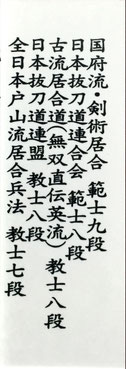 国府流・剣術居合 範士九段
日本抜刀道連合会 範士八段
古流居合道(無双直伝英流) 教士八段
日本抜刀道連盟 教士八段
全日本戸山流居合兵法 教士七段